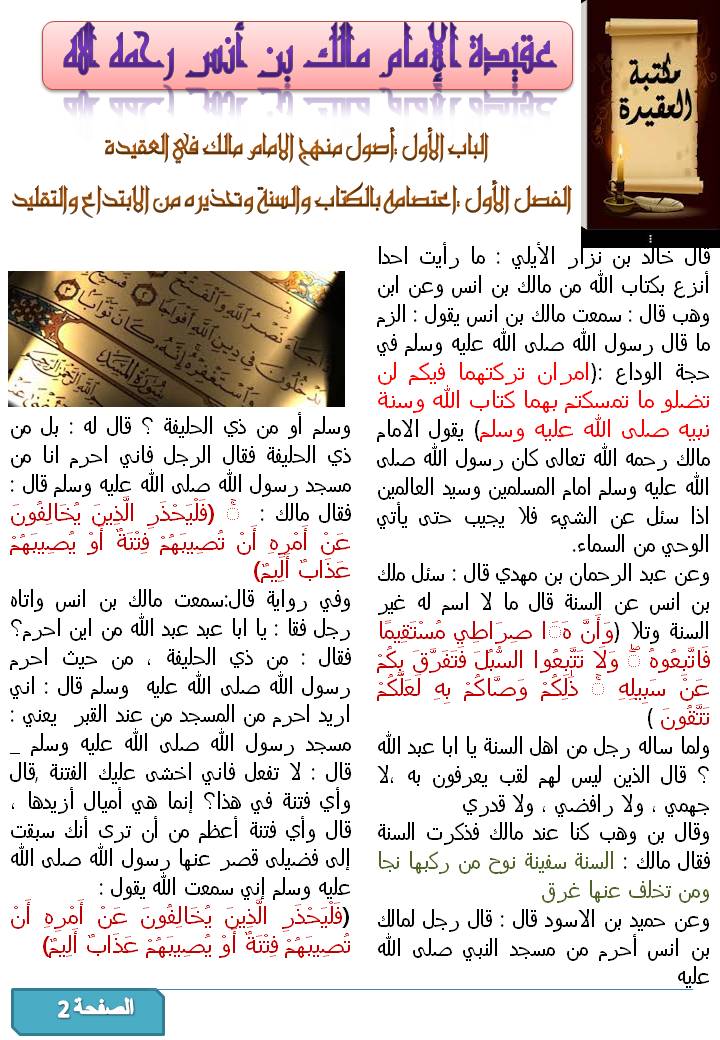 عقيدة الإمام مالك بن أنس رحمه الله
مكتبة
العقيدة
الباب الأول :أصول منهج الامام مالك في العقيدة
الفصل الأول :اعتصامه بالكتاب والسنة وتحذيره من الابتداع والتقليد
قال خالد بن نزار الأيلي : ما رأيت احدا
أنزع بكتاب الله من مالك بن انس وعن ابن
وهب قال : سمعت مالك بن انس يقول : الزم
ما قال رسول الله صلى الله عليه وسلم في
حجة الوداع :(امران تركتهما فيكم لن
تضلو ما تمسكتم بهما كتاب الله وسنة
نبيه صلى الله عليه وسلم) يقول الامام
مالك رحمه الله تعالى كان رسول الله صلى
الله عليه وسلم امام المسلمين وسيد العالمين
اذا سئل عن الشيء فلا يجيب حتى يأتي
الوحي من السماء.
وعن عبد الرحمان بن مهدي قال : سئل ملك
بن انس عن السنة قال ما لا اسم له غير
السنة وتلا (وَأَنَّ هَٰذَا صِرَاطِي مُسْتَقِيمًا
فَاتَّبِعُوهُ ۖ وَلَا تَتَّبِعُوا السُّبُلَ فَتَفَرَّقَ بِكُمْ
عَنْ سَبِيلِهِ ۚ ذَٰلِكُمْ وَصَّاكُمْ بِهِ لَعَلَّكُمْ
تَتَّقُونَ )
ولما ساله رجل من اهل السنة يا ابا عبد الله
؟ قال الذين ليس لهم لقب يعرفون به ،لا
جهمي ، ولا رافضي ، ولا قدري
وقال بن وهب كنا عند مالك فذكرت السنة
فقال مالك : السنة سفينة نوح من ركبها نجا
ومن تخلف عنها غرق
وعن حميد بن الاسود قال : قال رجل لمالك
بن انس أحرم من مسجد النبي صلى الله
عليه
وسلم أو من ذي الحليفة ؟ قال له : بل من
ذي الحليفة فقال الرجل فاني احرم انا من
مسجد رسول الله صلى الله عليه وسلم قال :
فقال مالك : ۚ (فَلْيَحْذَرِ الَّذِينَ يُخَالِفُونَ
عَنْ أَمْرِهِ أَنْ تُصِيبَهُمْ فِتْنَةٌ أَوْ يُصِيبَهُمْ
عَذَابٌ أَلِيمٌ)
وفي رواية قال:سمعت مالك بن انس واتاه
رجل فقا : يا ابا عبد عبد الله من اين احرم؟
فقال : من ذي الحليفة ، من حيث احرم
رسول الله صلى الله عليه وسلم قال : اني
اريد احرم من المسجد من عند القبر يعني :
مسجد رسول الله صلى الله عليه وسلم _
قال : لا تفعل فاني اخشى عليك الفتنة ,قال
وأي فتنة في هذا؟ إنما هي أميال أزيدها ،
قال وأي فتنة أعظم من أن ترى أنك سبقت
إلى فضيلى قصر عنها رسول الله صلى الله
عليه وسلم إني سمعت الله يقول :
(فَلْيَحْذَرِ الَّذِينَ يُخَالِفُونَ عَنْ أَمْرِهِ أَنْ
تُصِيبَهُمْ فِتْنَةٌ أَوْ يُصِيبَهُمْ عَذَابٌ أَلِيمٌ)
الصفحة 2